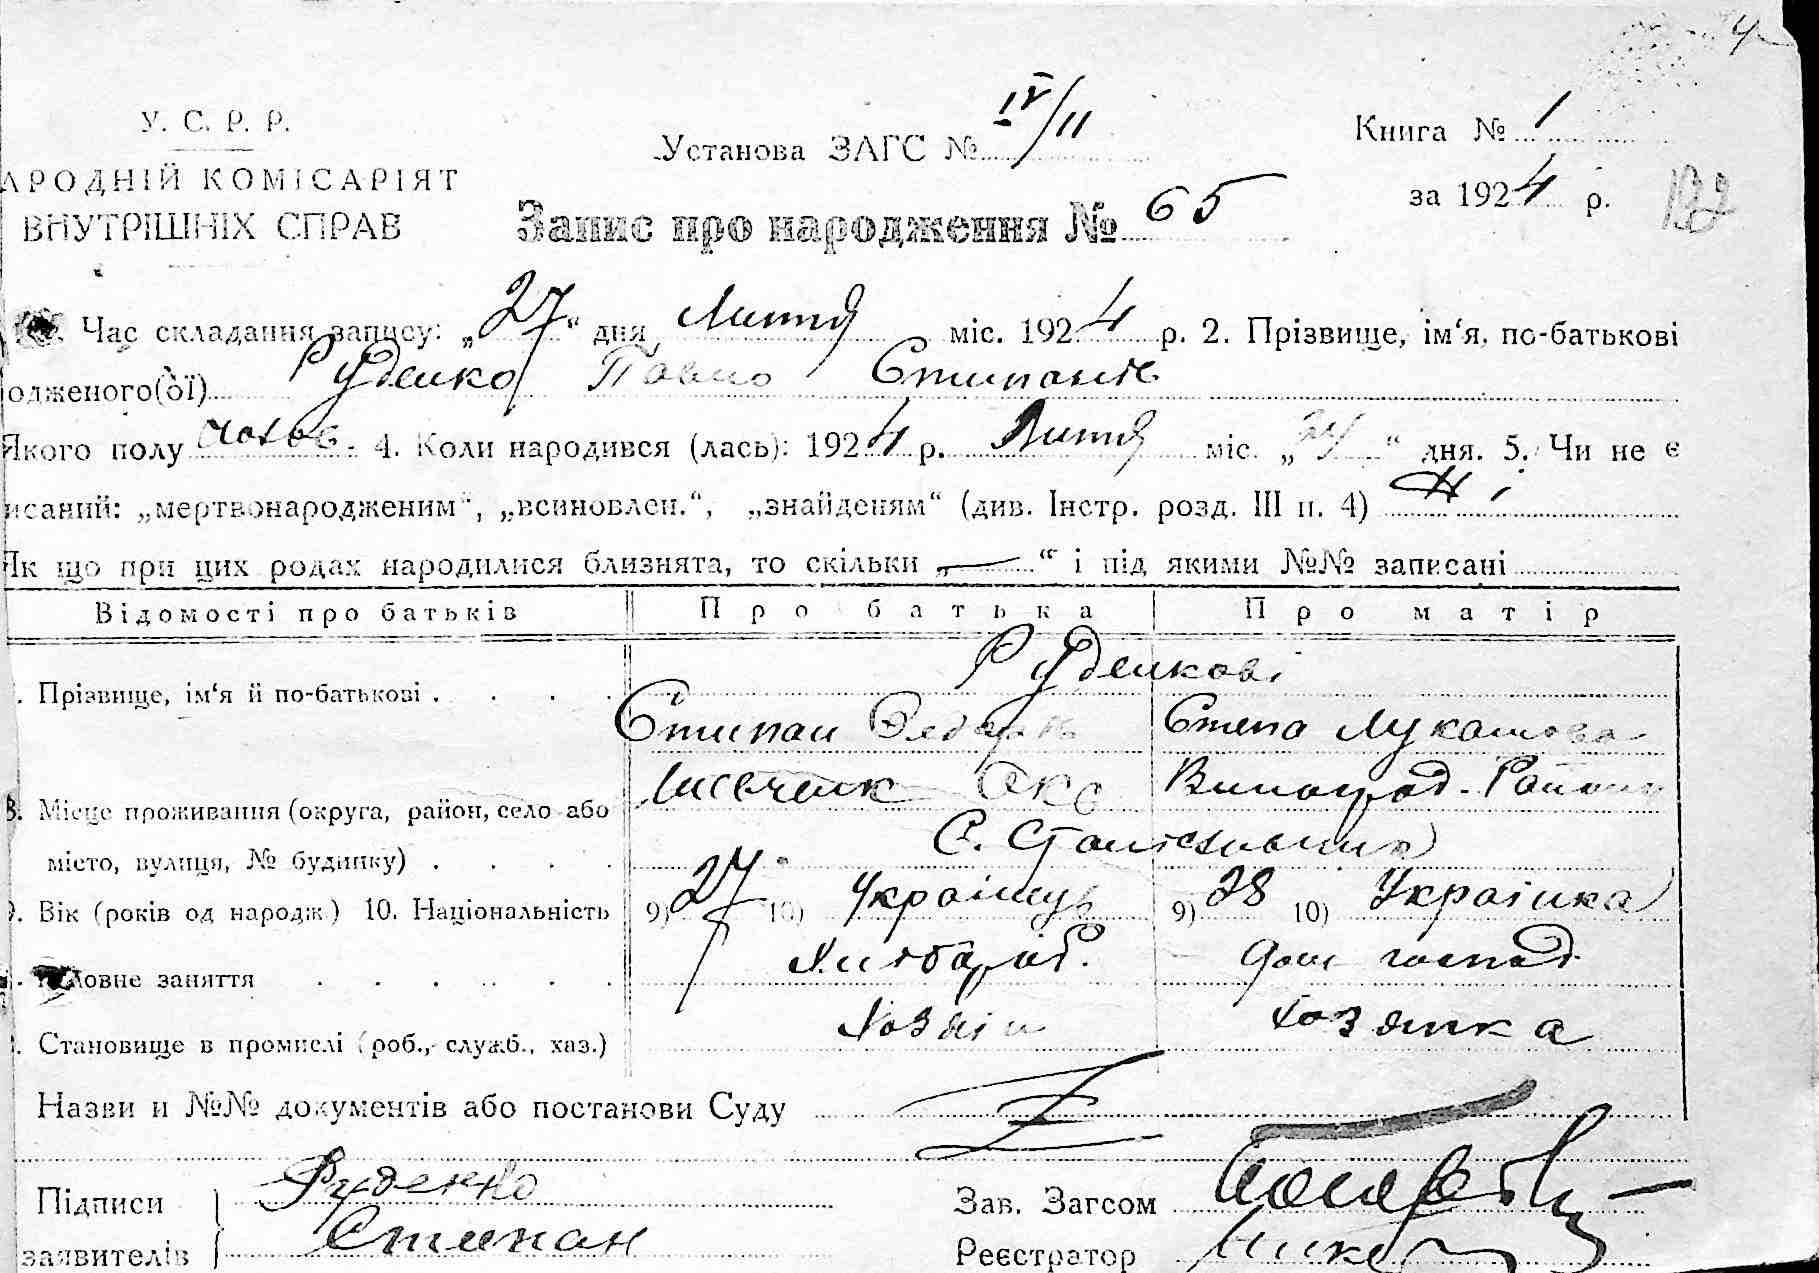 4
У. С. Р. Р.
АРОДНІЙ КОМІСАРІЯТ
ВНУТРІШНІХ СПРАВ
Установа ЗАГС № IV/11
Книга № 1
за 1924 р.
Запис про народження № 65
Час складання запису: „27“ дня Лютня міс. 1924 р. 2. Прізвище, ім‘я, по-батькові
одженого(ої) Руденко Павло Стипанів
Якого полу чолов. 4. Коли народився (лась): 1924 р. Лютня міс. „24“ дня. 5. Чи не є
исаний: „мертвонародженим“, „всиновлен.“, „знайденям“ (див. Інстр. розд. III п. 4) Ні
Як що при цих родах народилися близнята, то скільки „—“ і під якими №№ записані
Відомості про батьків Про батька Про матір
Руденкові
. Прізвище, ім‘я й по-батькові . . . .
Стипан Степа Лукашова
8. Місце проживання (округа, район, село або
місто, вулиця, № будинку) . . . .
Шевченк Окр Виноград. Району
С.
9. Вік (років од народж.) 10. Національність 9) 27 10) Українець 9) 28 10) Українка
Головне заняття . . . . . . Хлібороб. дом господ.
. Становище в промислі (роб., служб., хаз.) Хозяін хозяика
Назви й №№ документів або постанови Суду
Підписи Руденко
заявителів Стипан
Зав. Загсом
Реєстратор